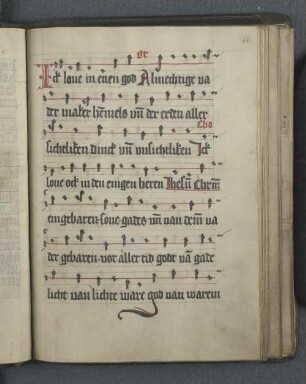 Or
Ick loue in enen god Almechtige va
der maker hēmels vn̄ der erden aller
Cho
sichtliken dinck vn̄ vnsichtliken Ick
loue ock in den enigen heren Ihesū Chrm̄
eingebaren sone gades vn̄ van dem va
der gebaren vor aller tid godt vā gade
licht van lichte ware god van warem